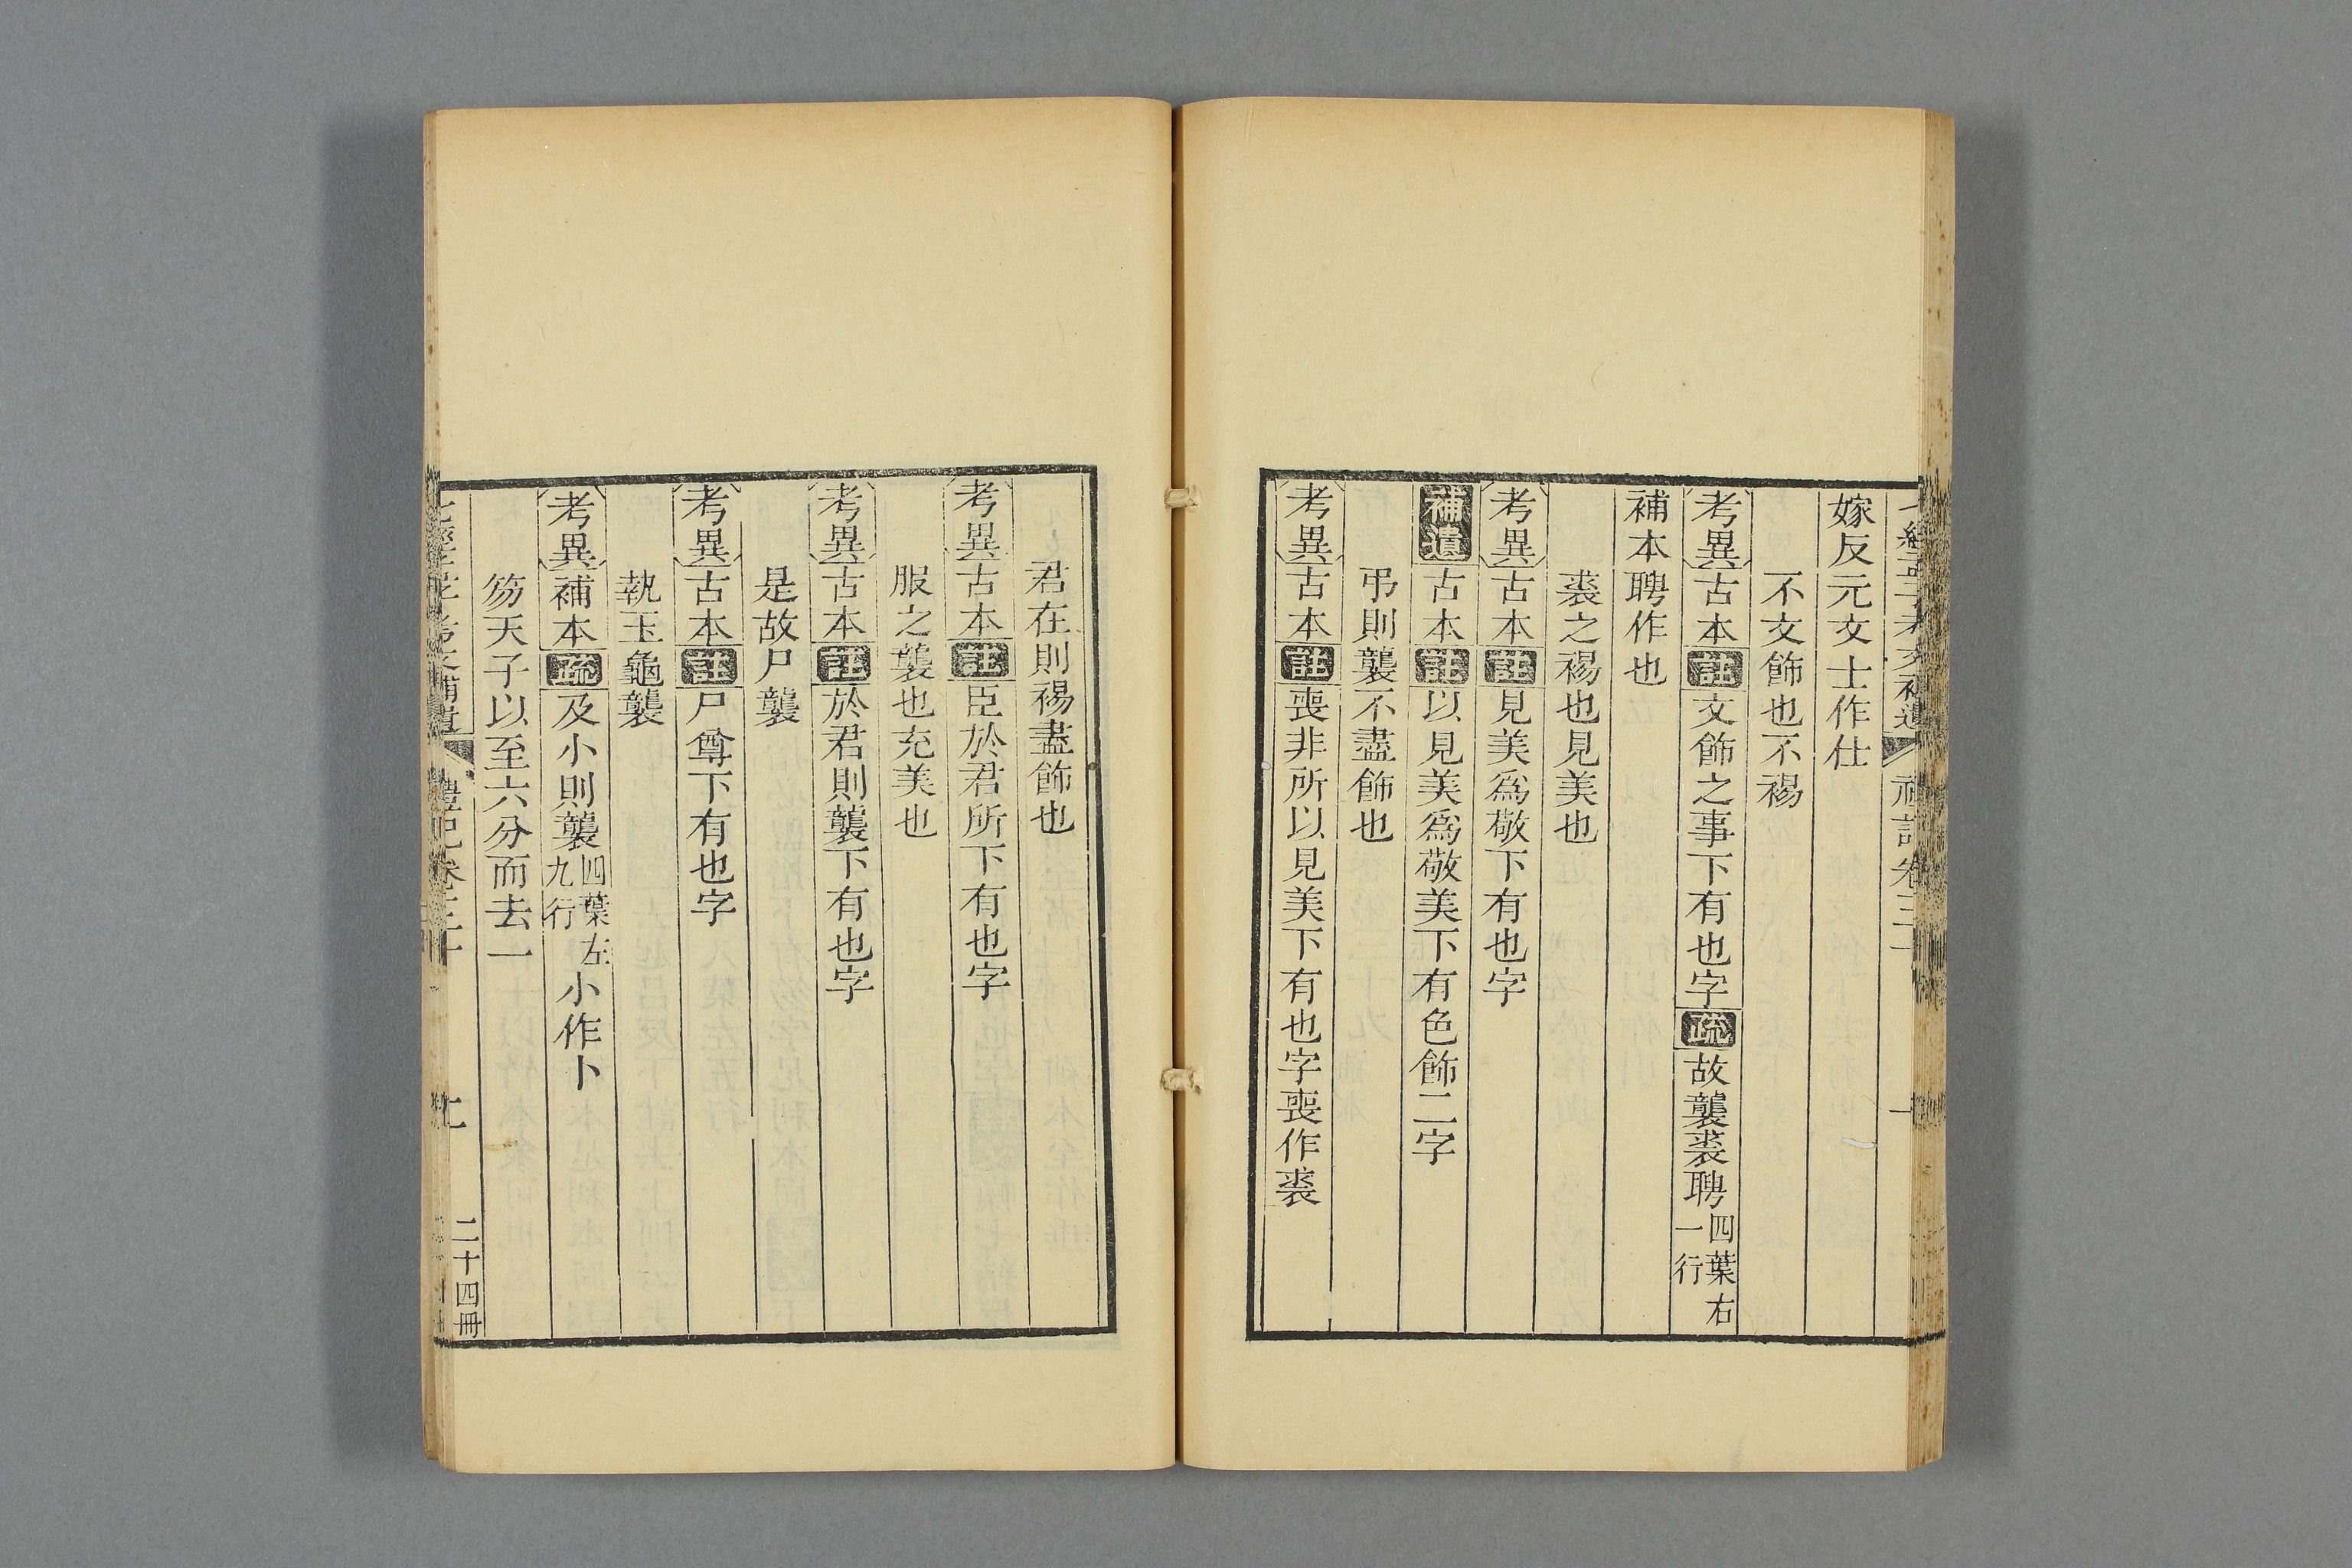 嫁反元文士作仕
不文飾也不裼
考異古本註文飾之事下有也字疏故襲裘聘四葉右一行
補本聘作也
裘之裼也見美也
考異古本註見美爲敬下有也字
補遺古本註以見美爲敬美下有色飾二字
弔則襲不盡飾也
考異古本註喪非所以見美下有也字喪作裘
君在則裼盡飾也
考異古本註臣於君所下有也字
服之襲也充美也
考異古本註於君則襲下有也字
是故尸襲
考異古本註尸尊下有也字
執玉龜襲
考異補本疏及小則襲四葉左九行小作卜
笏天子以至六分而去一
二十四冊